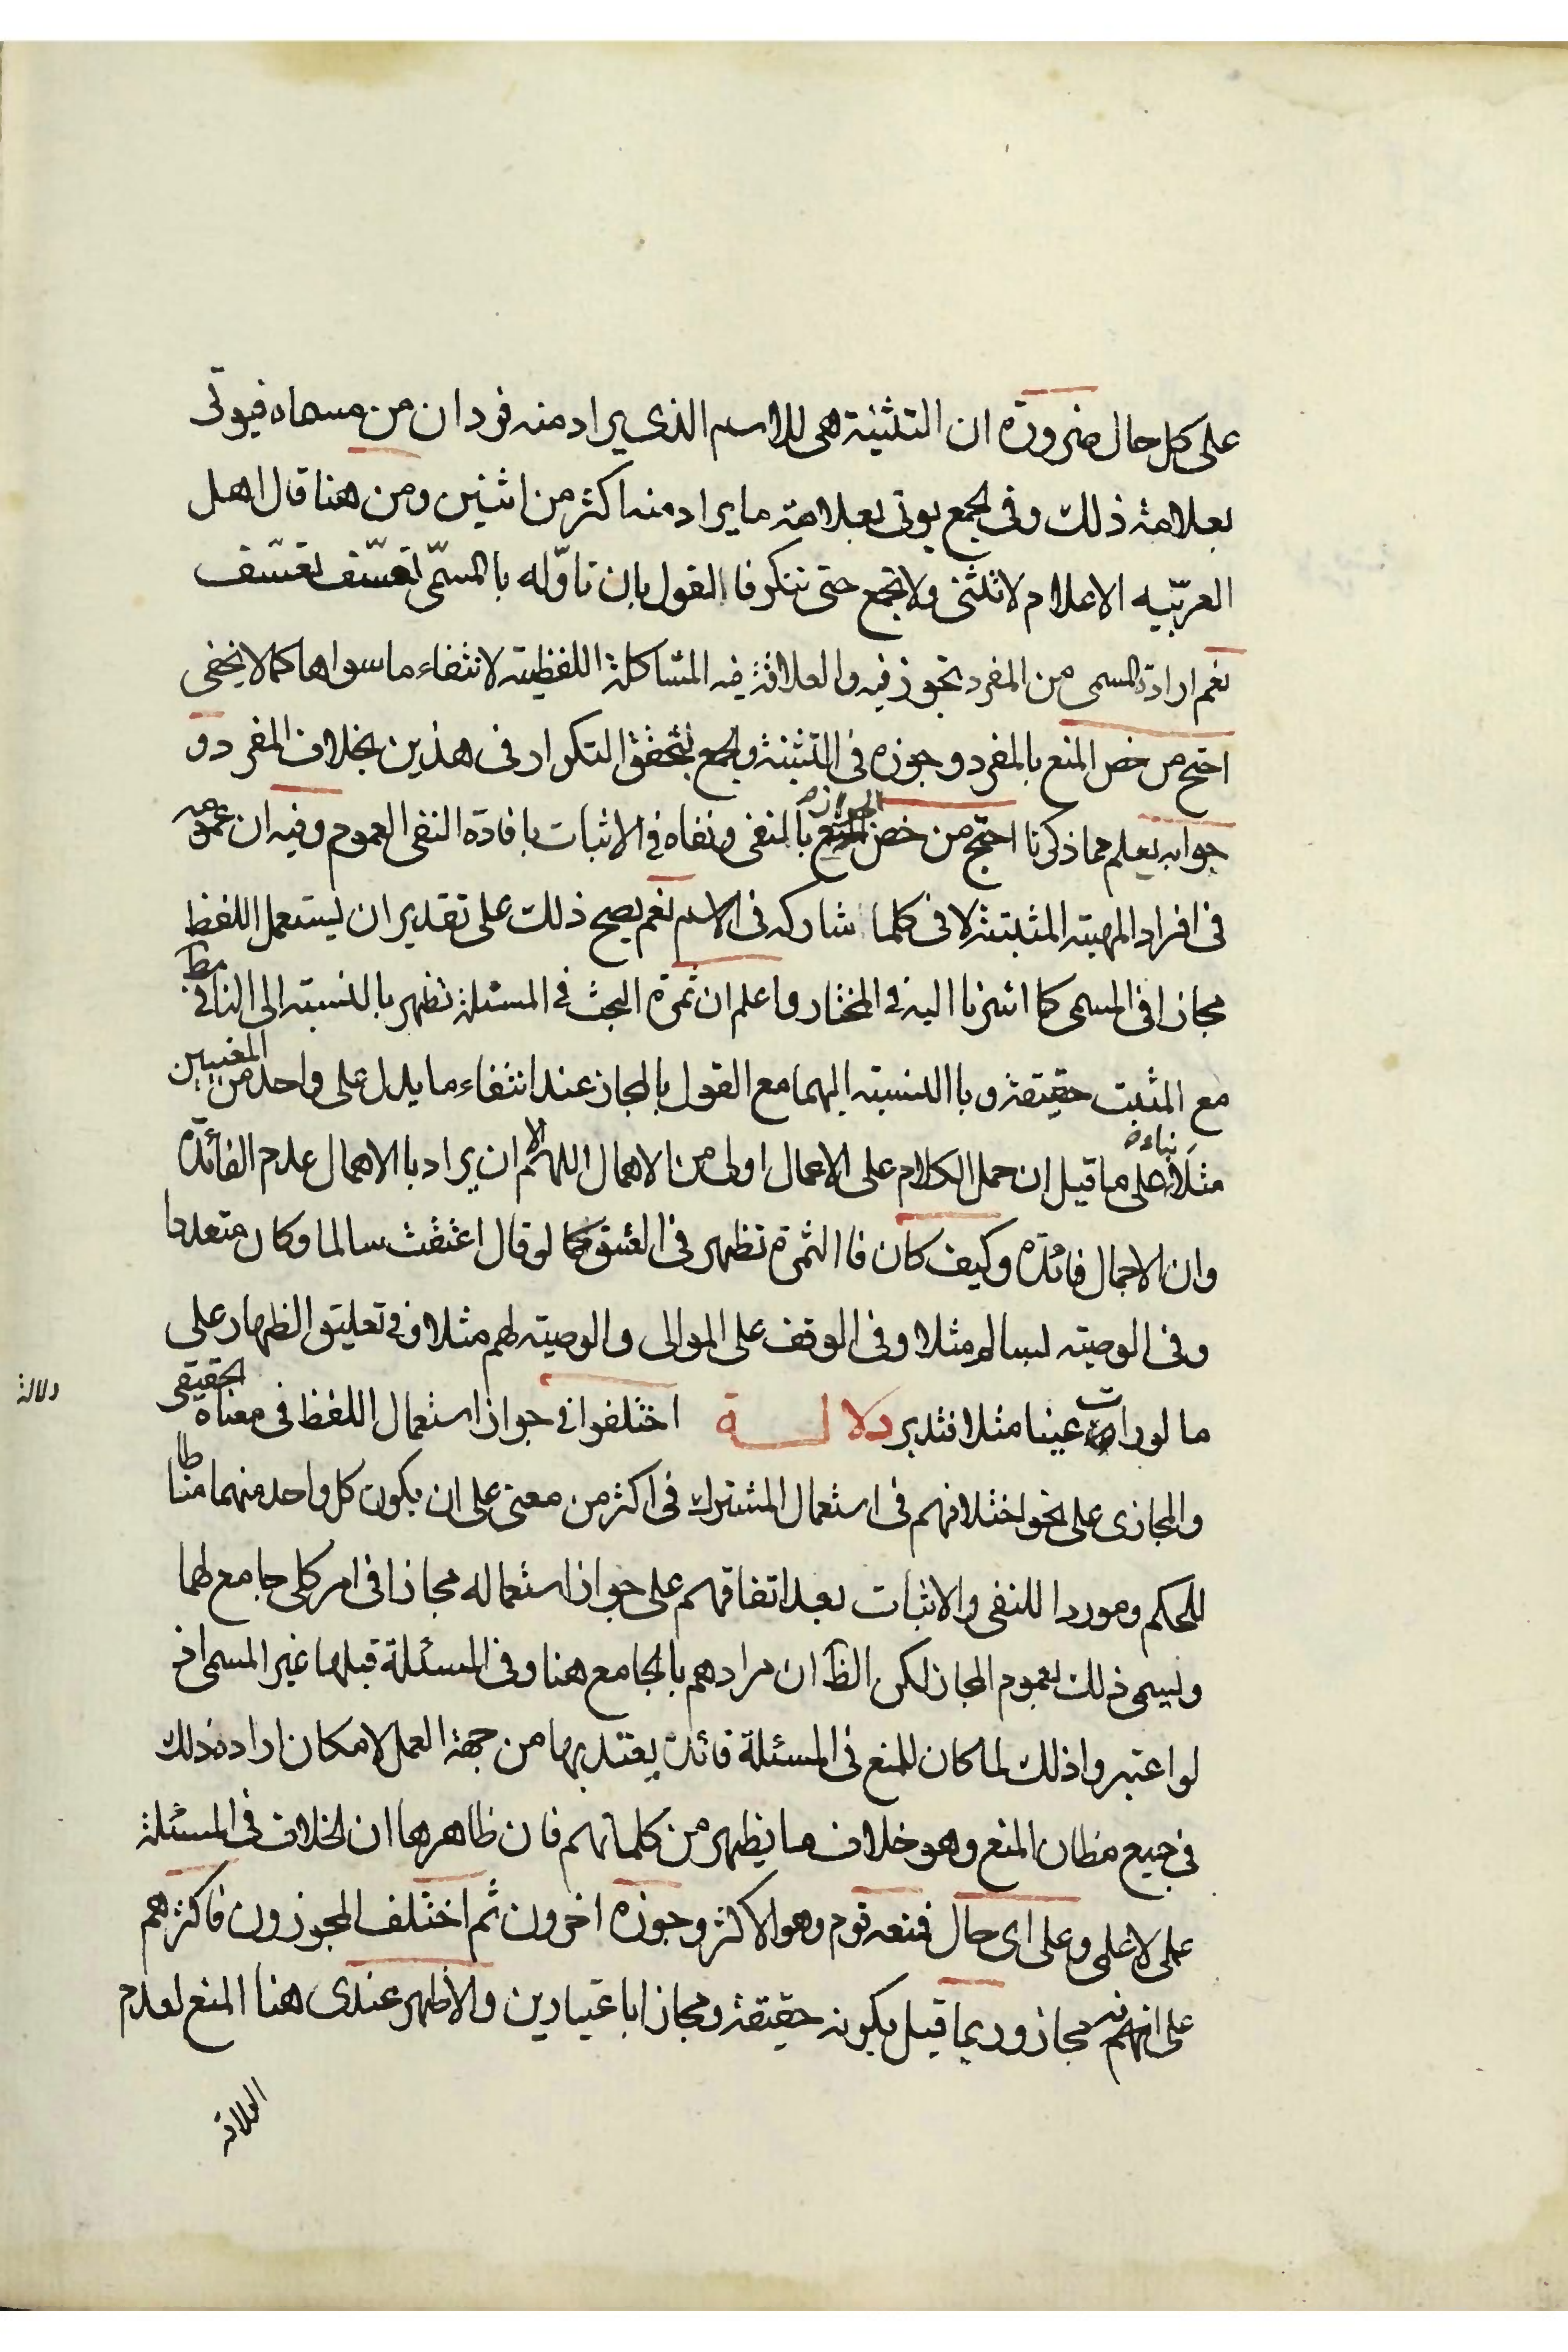 على كل حال ضرورة ان التثنية هى للاسم الذى يراد منه فردان من مسماه فيوتى
بعلامة ذلك وفى الجمع يوتى بعلامة ما يراد منه اكثر من اثنين ومن هنا قال اهل
العربّيه الاعلام لا تثنى ولا تجمع حتى تنكر فا القول بان تاوّله با المسمّى تعسّف تعسّف
نعم ارادة المسمى من المفرد تجوز فيه والعلاقة فيه المشاكلة اللفظية لانتفاء ما سواها كما لا يخفى
احتج من خص المنع بالمفرد وجوزه فى التثنية والجمع بتحقق التكرار فى هذين بخلاف المفرد و
جوابه يعلم مما ذكرنا احتج من خص الجواز بالنفى ونفاه فى الاثبات بافادة النفى العموم وفيه ان عمومه
فى افراد المهية المثبتة لا فى كلما شاركه فى الاسم نعم يصح ذلك على تقدير ان يستعمل اللفظ
مجازا فى المسمى كما اشرنا اليه فى المختار واعلم ان ثمرة البحث فى المسئلة تظهر بالنسبة الى النافى مط
مع المثبت حقيقة وبا النسبة اليهما مع القول بالمجاز عند انتفاء ما يدل على واحد من المعنيين
مثلا بناءه على ما قيل ان حمل الكلام على الاعمال اولى من الاهمال اللهم الا ان يراد با الاهمال علدم الفائدة
وان الاجمال فائدة وكيف كان فا الثمرة تظهر فى العتق كما لو قال اعتقت سالما وكان متعددا
وفى الوصية لسالم مثلا وفى الوقف على الموالى والوصية لهم مثلا وفى تعليق الظهار على
ما لو رات عينا مثلا فتدبر دلالـــة اختلفوا فى جواز استعمال اللفظ فى معناه الحقيقى
والمجازى على نحو اختلافهم فى استعمال المشترك فى اكثر من معنى على ان يكون كل واحد منهما مناطا
للحكم وموردا للنفى والاثبات بعد اتفاقهم على جواز استعماله مجازا فى امر كلى جامع لهما
ويسمى ذلك بعموم المجاز لكن الظ ان مرادهم بالجامع هنا وفى المسئلة قبلها غير المسمى اذ
لو اعتبروا ذلك لما كان للمنع فى المسئلة فائدة يعتد بها من جهة العمل لامكان ارادة ذلك
فى جميع مظان المنع وهو خلاف ما يظهر من كلماتهم فان ظاهرها ان الخلاف فى المسئلة
على وعلى اى حال فمنعه قوم وهو الاكثر وجوزه اخرون ثم اختلف المجوزون فاكثرهم
على انهم فيه مجاز وربما قيل بكونه حقيقة ومجازا باعتبارين والاظهر عندى هنا المنع لعدم
العلاقة
دلالة